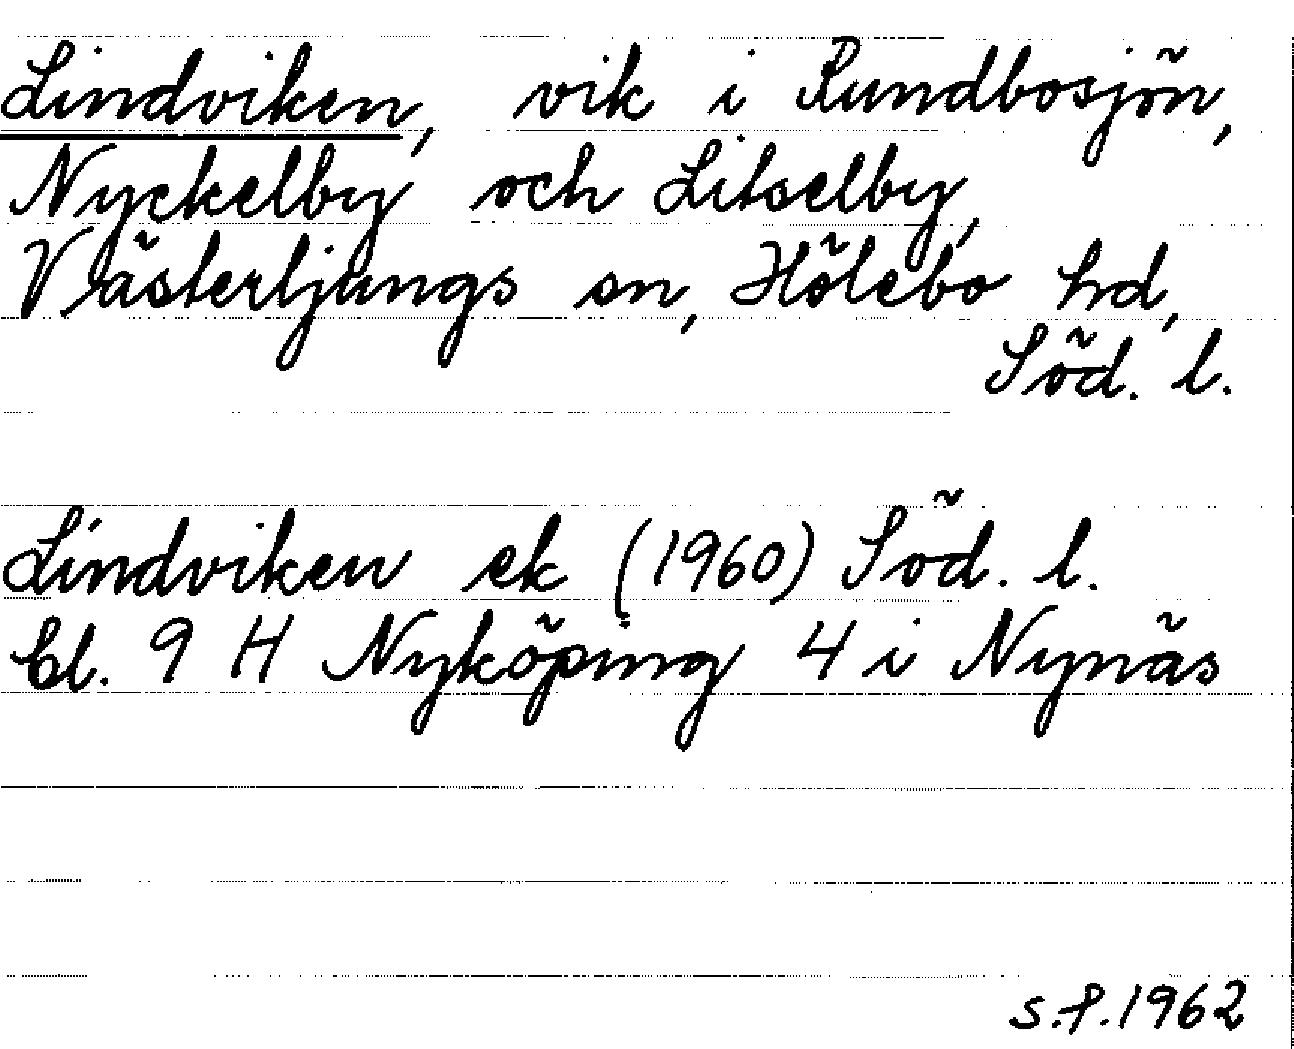 Lindviken, vik i Rundbosjön,
Nyckelby och Litselby,
Västerljungs sn, Hölebo hd,
Söd. l.
Lindviken ek (1960) Söd. l.
bl. 9 H Nyköping 4 i Nynäs
s.f. 1962